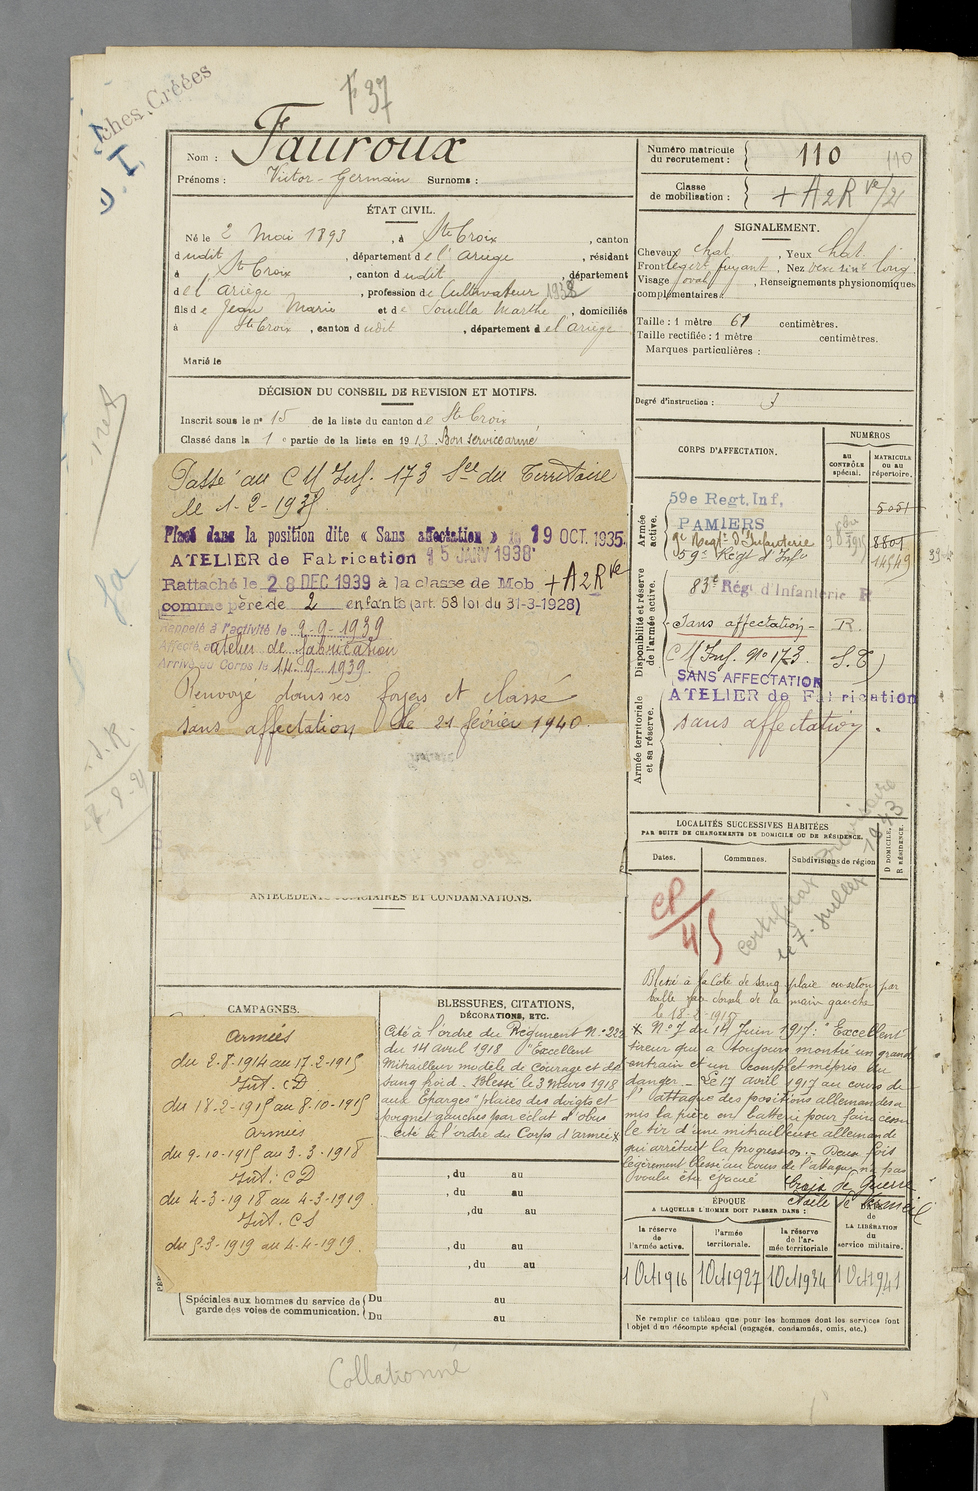 F 37
ches Créées
D.I.
Nom : Fauroux
Prénoms : Victor-Germain Surnoms :
Numéro matricule du recrutement : 110 110
Classe de mobilisation : + A 2 R Ve/21
ÉTAT CIVIL.
Né le 2 Mai 1893, à Ste Croix, canton
dudit, département de l'ariège, résidant
à Ste Croix, canton dudit, département
de l'ariège, profession de Cultivateur 1938
fils de Jean Marie et de Souilla Marthe, domiciliés
à Ste Croix, canton dudit, département de l'ariège
Marié le
SIGNALEMENT.
Cheveux chat. Yeux chat.
Front légert fuyant, Nez long.
Visage oval, Renseignements physionomiques
complémentaires :
Taille : 1 mètre 61 centimètres.
Taille rectifiée : 1 mètre centimètres.
Marques particulières :
Degré d'instruction : 3
DÉCISION DU CONSEIL DE REVISION ET MOTIFS.
Inscrit sous le n° 15 de la liste du canton de Ste Croix
Classé dans la 1e partie de la liste en 1913 Bon service armé
Passé au C M Inf. 173 Sce du Territoire
le 1-2-193
Placé dans la position dite « Sans affectation » le 19 OCT. 1935
ATELIER de Fabrication 15 JANV 1938
Rattaché le 28 DEC 1939 à la classe de Mob + A 2 R Ve
comme père de 2 enfants (art. 58 loi du 31-3-1928)
Rappelé à l'activité le 2-9-1939
Affecté à atelier de fabrication
Arrivé au Corps le 14-9-1939.
Renvoyé dans ses foyers et classé
sans affectation le 21 février 1940.
CORPS D'AFFECTATION.
NUMÉROS
AU CONTRÔLE SPÉCIAL.
MATRICULE OU AU RÉPERTOIRE.
Armée active.
59e Regt. Inf,
PAMIERS
5051
9e Regt d'Infanterie
8801
59e Régt d'Infie
14549
Disponibilité et réserve de l'armée active.
83e Régt d'Infanterie R
Sans affectation - R.
C M Inf. No 173. S.T
SANS AFFECTATION
ATELIER de Fabrication
Armée territoriale et sa réserve.
sans affectation.
LOCALITÉS SUCCESSIVES HABITÉES
PAR SUITE DE CHANGEMENTS DE DOMICILE OU DE RÉSIDENCE.
Dates. Communes. Subdivisions de région
D DOMICILE, R RÉSIDENCE.
CP/45
certificat provisoire
le 7 Juillet 1943
ANTÉCÉDENTS JUDICIAIRES ET CONDAMNATIONS.
CAMPAGNES.
Armées
du 2-8-1914 au 17-2-1915
Int. CD
du 18-2-1915 au 8-10-1915
Armées
du 9-10-1915 au 3-3-1918
Int. CD
du 4-3-1918 au 4-3-1919
Int. CS
du 5-3-1919 au 4-4-1919.
BLESSURES, CITATIONS,
DÉCORATIONS, ETC.
Cité à l'ordre du Régiment No 222
du 14 avril 1918 "Excellent
Mitrailleur modèle de courage et de
sang froid. Blessé le 3 Mars 1918
aux Eparges" plaies des doigts et
poignet gauches par éclat d'obus
cité à l'ordre du Corps d'armée X
Blessé à la Cote de Sang plaie en séton par
balle face dorsale de la main gauche
le 18-2-1915
X No 7 du 14 Juin 1917 : "Excellent
tireur qui a toujours montré un grand
entrain et un complet mépris du
danger. Le 17 avril 1917 au cours de
l'attaque des positions allemandes a
mis la pièce en batterie pour faire cesser
le tir d'une mitrailleuse allemande
qui arrêtait la progression. Deux fois
légèrement blessé au cours de l'attaque n'a pas
voulu être évacué Croix de Guerre
Etoile de Vermeil
, du au
, du au
, du au
, du au
, du au
Spéciales aux hommes du service de garde des voies de communication.
Du au
Du au
ÉPOQUE
A LAQUELLE L'HOMME DOIT PASSER DANS :
la réserve de l'armée active.
l'armée territoriale.
la réserve de l'armée territoriale
DATE de LA LIBÉRATION du service militaire.
1 Oct 1916 1 Oct 1927 1 Oct 1934 1 Oct 1941
Ne remplir ce tableau que pour les hommes dont les services font
l'objet d'un décompte spécial (engagés, condamnés, omis, etc.)
Collationné